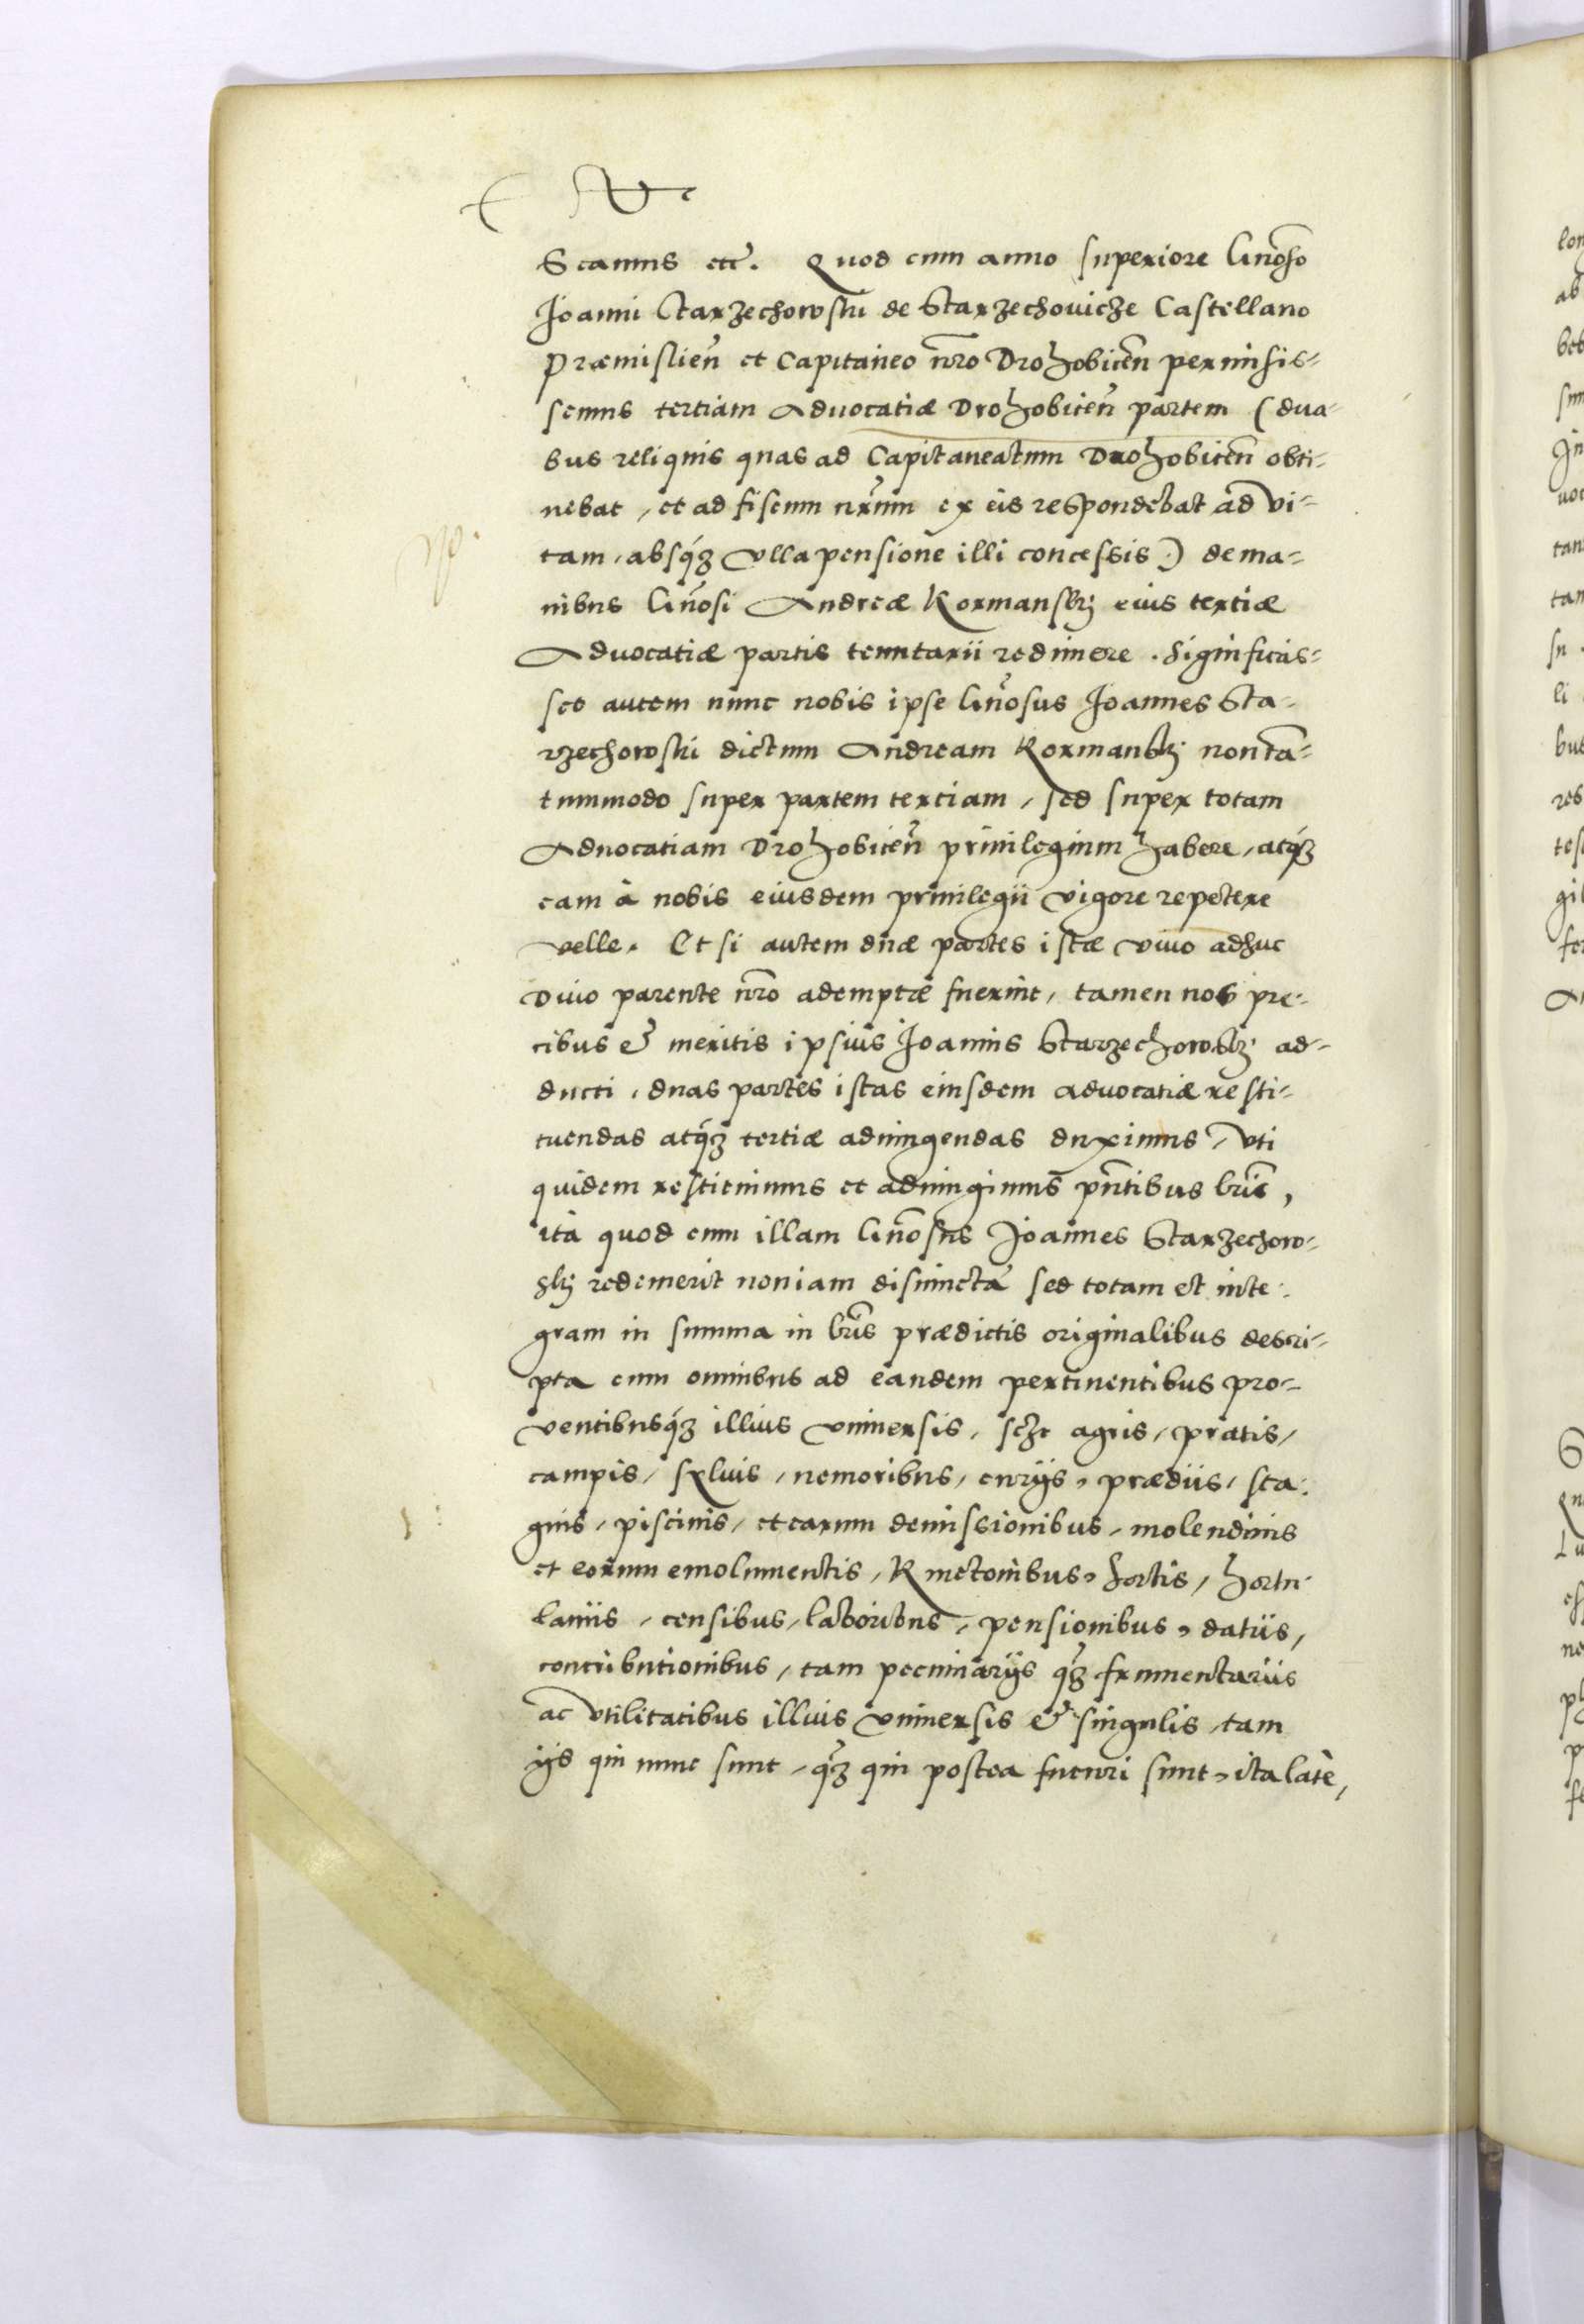 Scanms etc. Quod cum anno superiore Gnoso
Joanni Starzechowski de Starzechovicze Castellano
Præmislien et Capitaneo nro Drohobicen permisis-
semus tertiam Advocatiæ Drohobicen partem (dua-
bus reliquis quas ad Capitaneatum Drohobicen obti-
nebat, et ad fiscum nrum ex eis respondebat ad vi-
tam, absq3 vlla pensione illi concessis) de ma-
nibus Gnosi Andreæ Kormanskij eius tertiæ
Advocatiæ partis tenutarii redimere. Significas-
set autem nunc nobis ipse Gnosus Joannes Sta-
rzechowski dictum Andream Kormanskij non tã-
tummodo super partem tertiam, sed super totam
Aduocatiam Drohobicen priuilegium habere, atq3
eam à nobis eiusdem priuilegii vigore repetere
velle. Et si autem duæ partes istæ viuo adhuc
Diuo parente nro ademptæ fuerint, tamen nos pre-
cibus & meritis ipsius Joannis Starzechowskij ad-
ducti, duas partes istas eiusdem advocatiæ resti-
tuendas atq3 tertiæ adiungendas duximus, vti
quidem restituimus et adiungimus pntibus lris,
ità quod cum illam Gnosus Joannes Starzechow-
skij redemerit non iam disiunctã sed totam et inte-
gram in summa in lris prædictis originalibus descri-
pta cum omnibus ad eandem pertinentibus pro-
ventibusq3 illius vniuersis, sczt agris, pratis,
campis, sylvis, nemoribus, curijs, prædiis, sta-
gnis, piscinis, et earum demissionibus, molendinis
et eorum emolumentis, Kmetonibus, hortis, hortu-
laniis, censibus, laboribus, pensionibus, datiis,
contributionibus, tam pecuniarijs q3 frumentariis
ac vtilitatibus illius vniuersis & singulis, tam
ijs qui nunc sunt, q3 qui postea futuri sunt, ita latè,